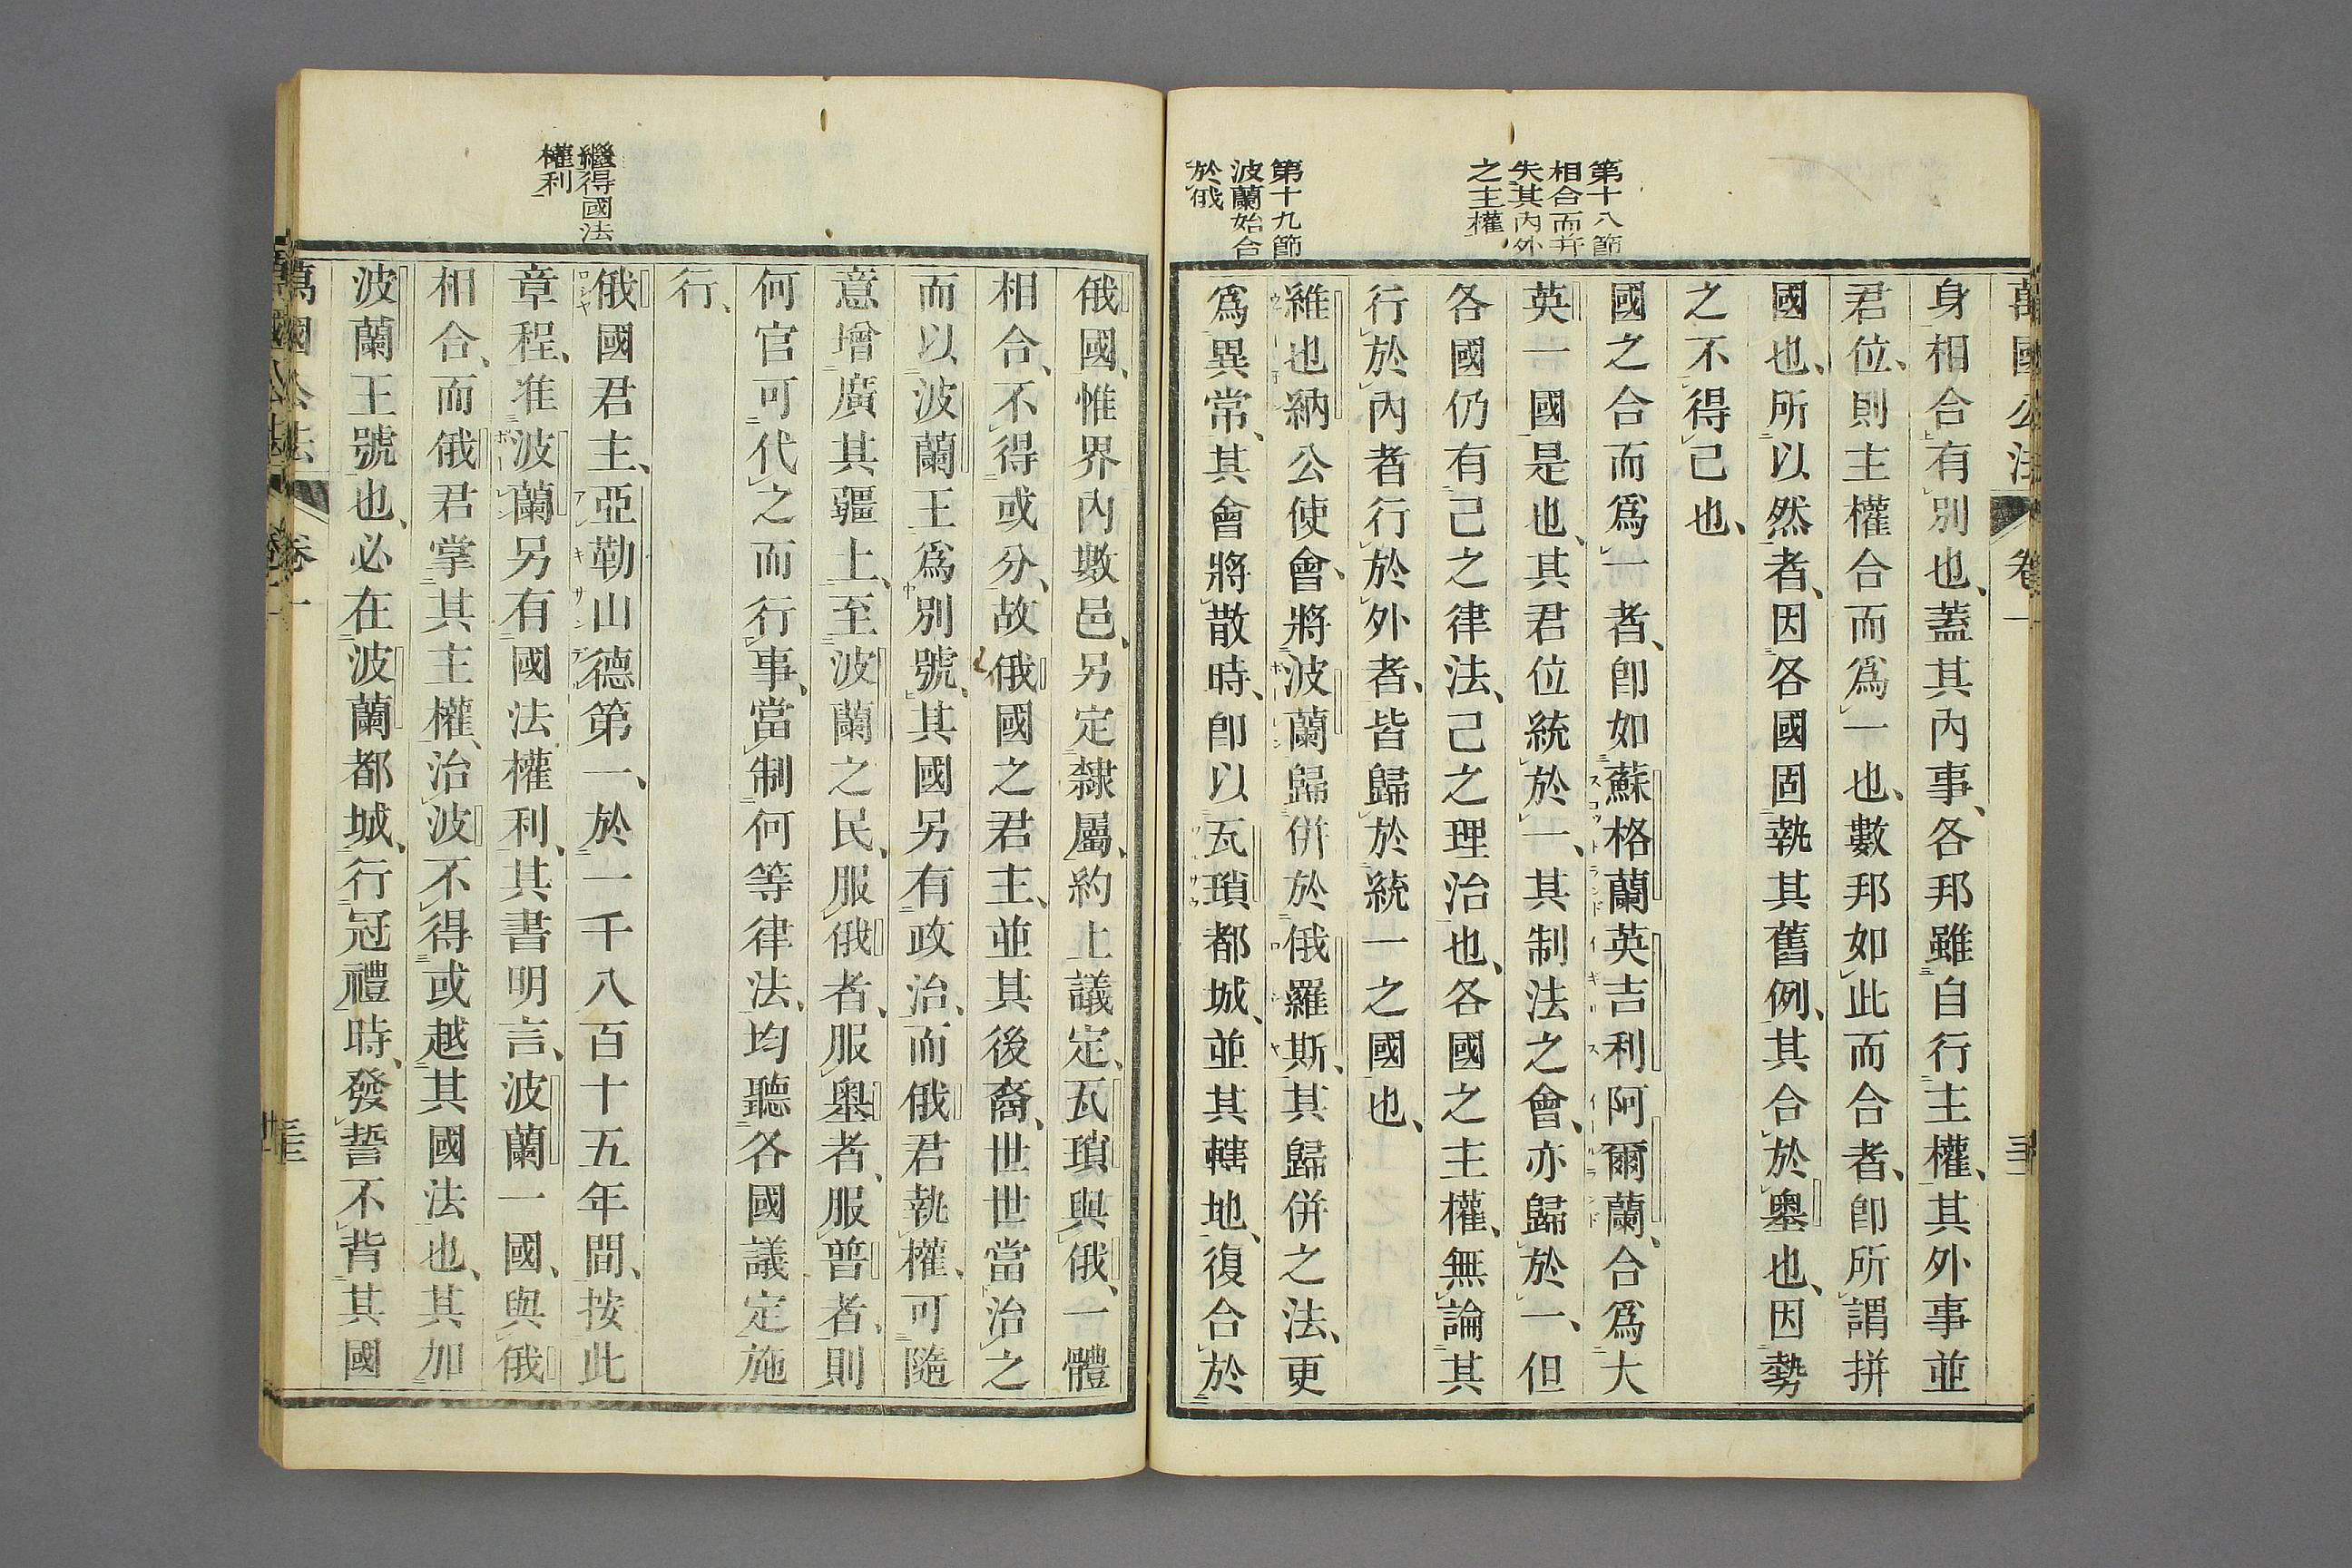 萬國公法 卷一
身相合有別也、蓋其內事、各邦雖自行主權、其外事並
君位、則主權合而爲一也、數邦如此而合者、卽所謂拼
國也、所以然者、因各國固執其舊例、其合於奧也、因勢
之不得已也、
第十八節
相合而幷
失其內外
之主權
國之合而爲一者、卽如蘇格蘭英吉利阿爾蘭、合爲大
英一國是也、其君位統於一、其制法之會、亦歸於一、但
各國仍有己之律法、己之理治也、各國之主權、無論其
行於內者行於外者、皆歸於統一之國也、
第十九節
波蘭始合
於俄
維也納公使會、將波蘭歸併於俄羅斯、其歸併之法、更
爲異常、其會將散時、卽以瓦瑣都城、並其轄地、復合於
俄國、惟界內數邑、另定隸屬、約上議定、瓦瑣與俄、一體
相合、不得或分、故俄國之君主、並其後裔、世世當治之
而以波蘭王爲別號、其國另有政治、而俄君執權、可隨
意增廣其疆土、至波蘭之民、服俄者、服奧者、服普者、則
何官可代之而行事、當制何等律法、均聽各國議定施
行、
繼得國法
權利
俄國君主、亞勒山德第一、於一千八百十五年間、按此
章程、准波蘭另有國法權利、其書明言、波蘭一國、與俄
相合、而俄君掌其主權、治波不得或越其國法也、其加
波蘭王號也、必在波蘭都城、行冠禮時、發誓不背其國
萬國公法 卷一